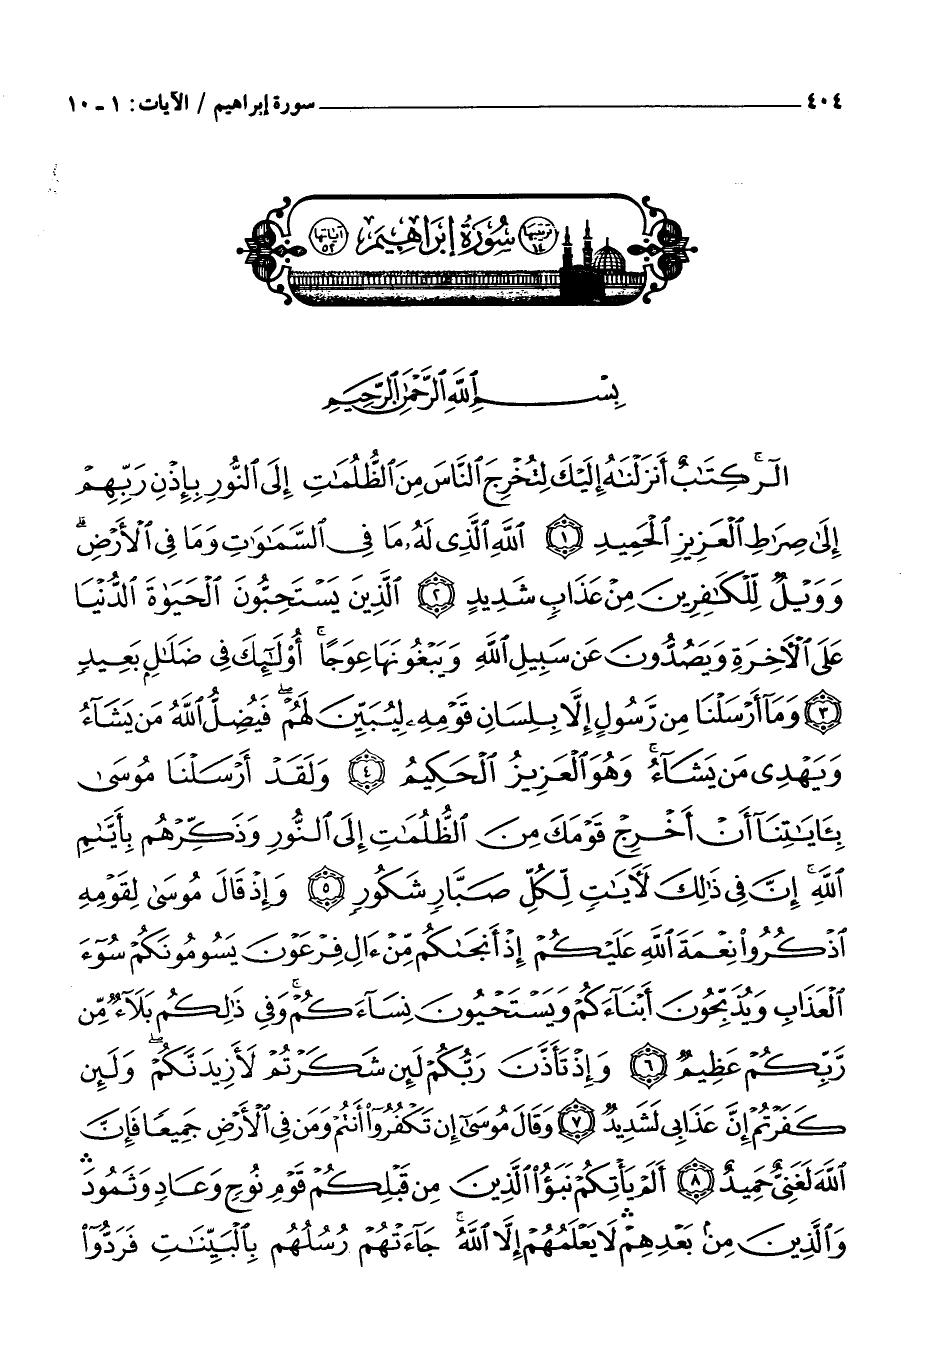 ٤٠٤ سورة إبراهيم / الآيات: ١ - ١٠
ترتيبها ١٤ سُورَةُ إِبْرَاهِيمَ آياتها ٥٢
بِسْمِ ٱللَّهِ ٱلرَّحْمَٰنِ ٱلرَّحِيمِ
الٓرۚ كِتَٰبٌ أَنزَلْنَٰهُ إِلَيْكَ لِتُخْرِجَ ٱلنَّاسَ مِنَ ٱلظُّلُمَٰتِ إِلَى ٱلنُّورِ بِإِذْنِ رَبِّهِمْ
إِلَىٰ صِرَٰطِ ٱلْعَزِيزِ ٱلْحَمِيدِ ١ ٱللَّهِ ٱلَّذِى لَهُۥ مَا فِى ٱلسَّمَٰوَٰتِ وَمَا فِى ٱلْأَرْضِۗ
وَوَيْلٌ لِّلْكَٰفِرِينَ مِنْ عَذَابٍ شَدِيدٍ ٢ ٱلَّذِينَ يَسْتَحِبُّونَ ٱلْحَيَوٰةَ ٱلدُّنْيَا
عَلَى ٱلْأَخِرَةِ وَيَصُدُّونَ عَن سَبِيلِ ٱللَّهِ وَيَبْغُونَهَا عِوَجًاۚ أُوْلَٰٓئِكَ فِى ضَلَٰلٍۭ بَعِيدٍ
٣ وَمَآ أَرْسَلْنَا مِن رَّسُولٍ إِلَّا بِلِسَانِ قَوْمِهِۦ لِيُبَيِّنَ لَهُمْۖ فَيُضِلُّ ٱللَّهُ مَن يَشَآءُ
وَيَهْدِى مَن يَشَآءُۚ وَهُوَ ٱلْعَزِيزُ ٱلْحَكِيمُ ٤ وَلَقَدْ أَرْسَلْنَا مُوسَىٰ
بِـَٔايَٰتِنَآ أَنْ أَخْرِجْ قَوْمَكَ مِنَ ٱلظُّلُمَٰتِ إِلَى ٱلنُّورِ وَذَكِّرْهُم بِأَيَّىٰمِ
ٱللَّهِۚ إِنَّ فِى ذَٰلِكَ لَأَيَٰتٍ لِّكُلِّ صَبَّارٍ شَكُورٍ ٥ وَإِذْ قَالَ مُوسَىٰ لِقَوْمِهِ
ٱذْكُرُواْ نِعْمَةَ ٱللَّهِ عَلَيْكُمْ إِذْ أَنجَىٰكُم مِّنْ ءَالِ فِرْعَوْنَ يَسُومُونَكُمْ سُوٓءَ
ٱلْعَذَابِ وَيُذَبِّحُونَ أَبْنَآءَكُمْ وَيَسْتَحْيُونَ نِسَآءَكُمْۚ وَفِى ذَٰلِكُم بَلَآءٌ مِّن
رَّبِّكُمْ عَظِيمٌ ٦ وَإِذْ تَأَذَّنَ رَبُّكُمْ لَئِن شَكَرْتُمْ لَأَزِيدَنَّكُمْۖ وَلَئِن
كَفَرْتُمْ إِنَّ عَذَابِى لَشَدِيدٌ ٧ وَقَالَ مُوسَىٰٓ إِن تَكْفُرُوٓاْ أَنتُمْ وَمَن فِى ٱلْأَرْضِ جَمِيعًا فَإِنَّ
ٱللَّهَ لَغَنِىٌّ حَمِيدٌ ٨ أَلَمْ يَأْتِكُمْ نَبَؤُاْ ٱلَّذِينَ مِن قَبْلِكُمْ قَوْمِ نُوحٍ وَعَادٍ وَثَمُودَۛ
وَٱلَّذِينَ مِنۢ بَعْدِهِمْۛ لَا يَعْلَمُهُمْ إِلَّا ٱللَّهُۚ جَآءَتْهُمْ رُسُلُهُم بِٱلْبَيِّنَٰتِ فَرَدُّوٓاْ